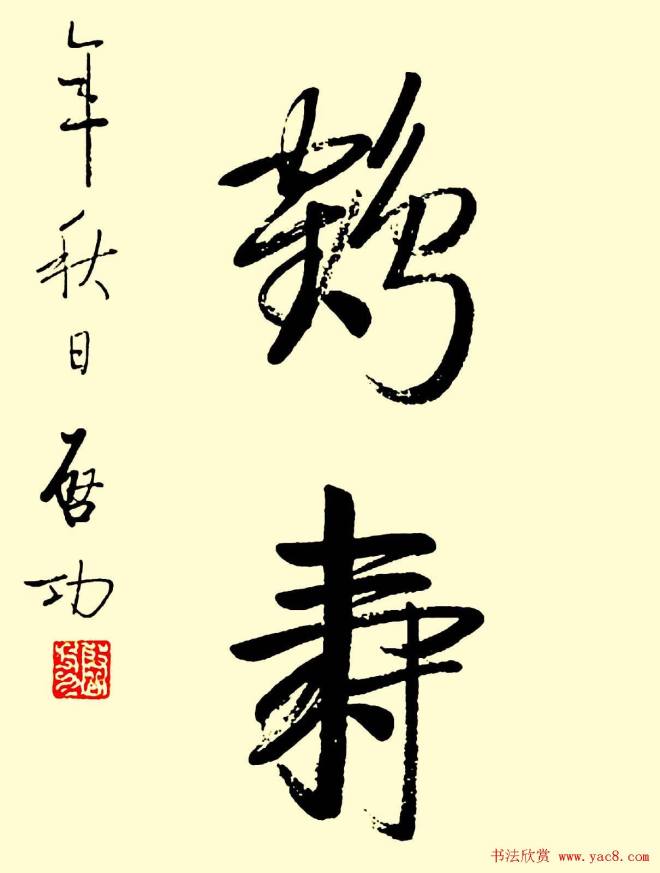 鹤寿
年秋日 启功
书法欣赏 www.yac8.com